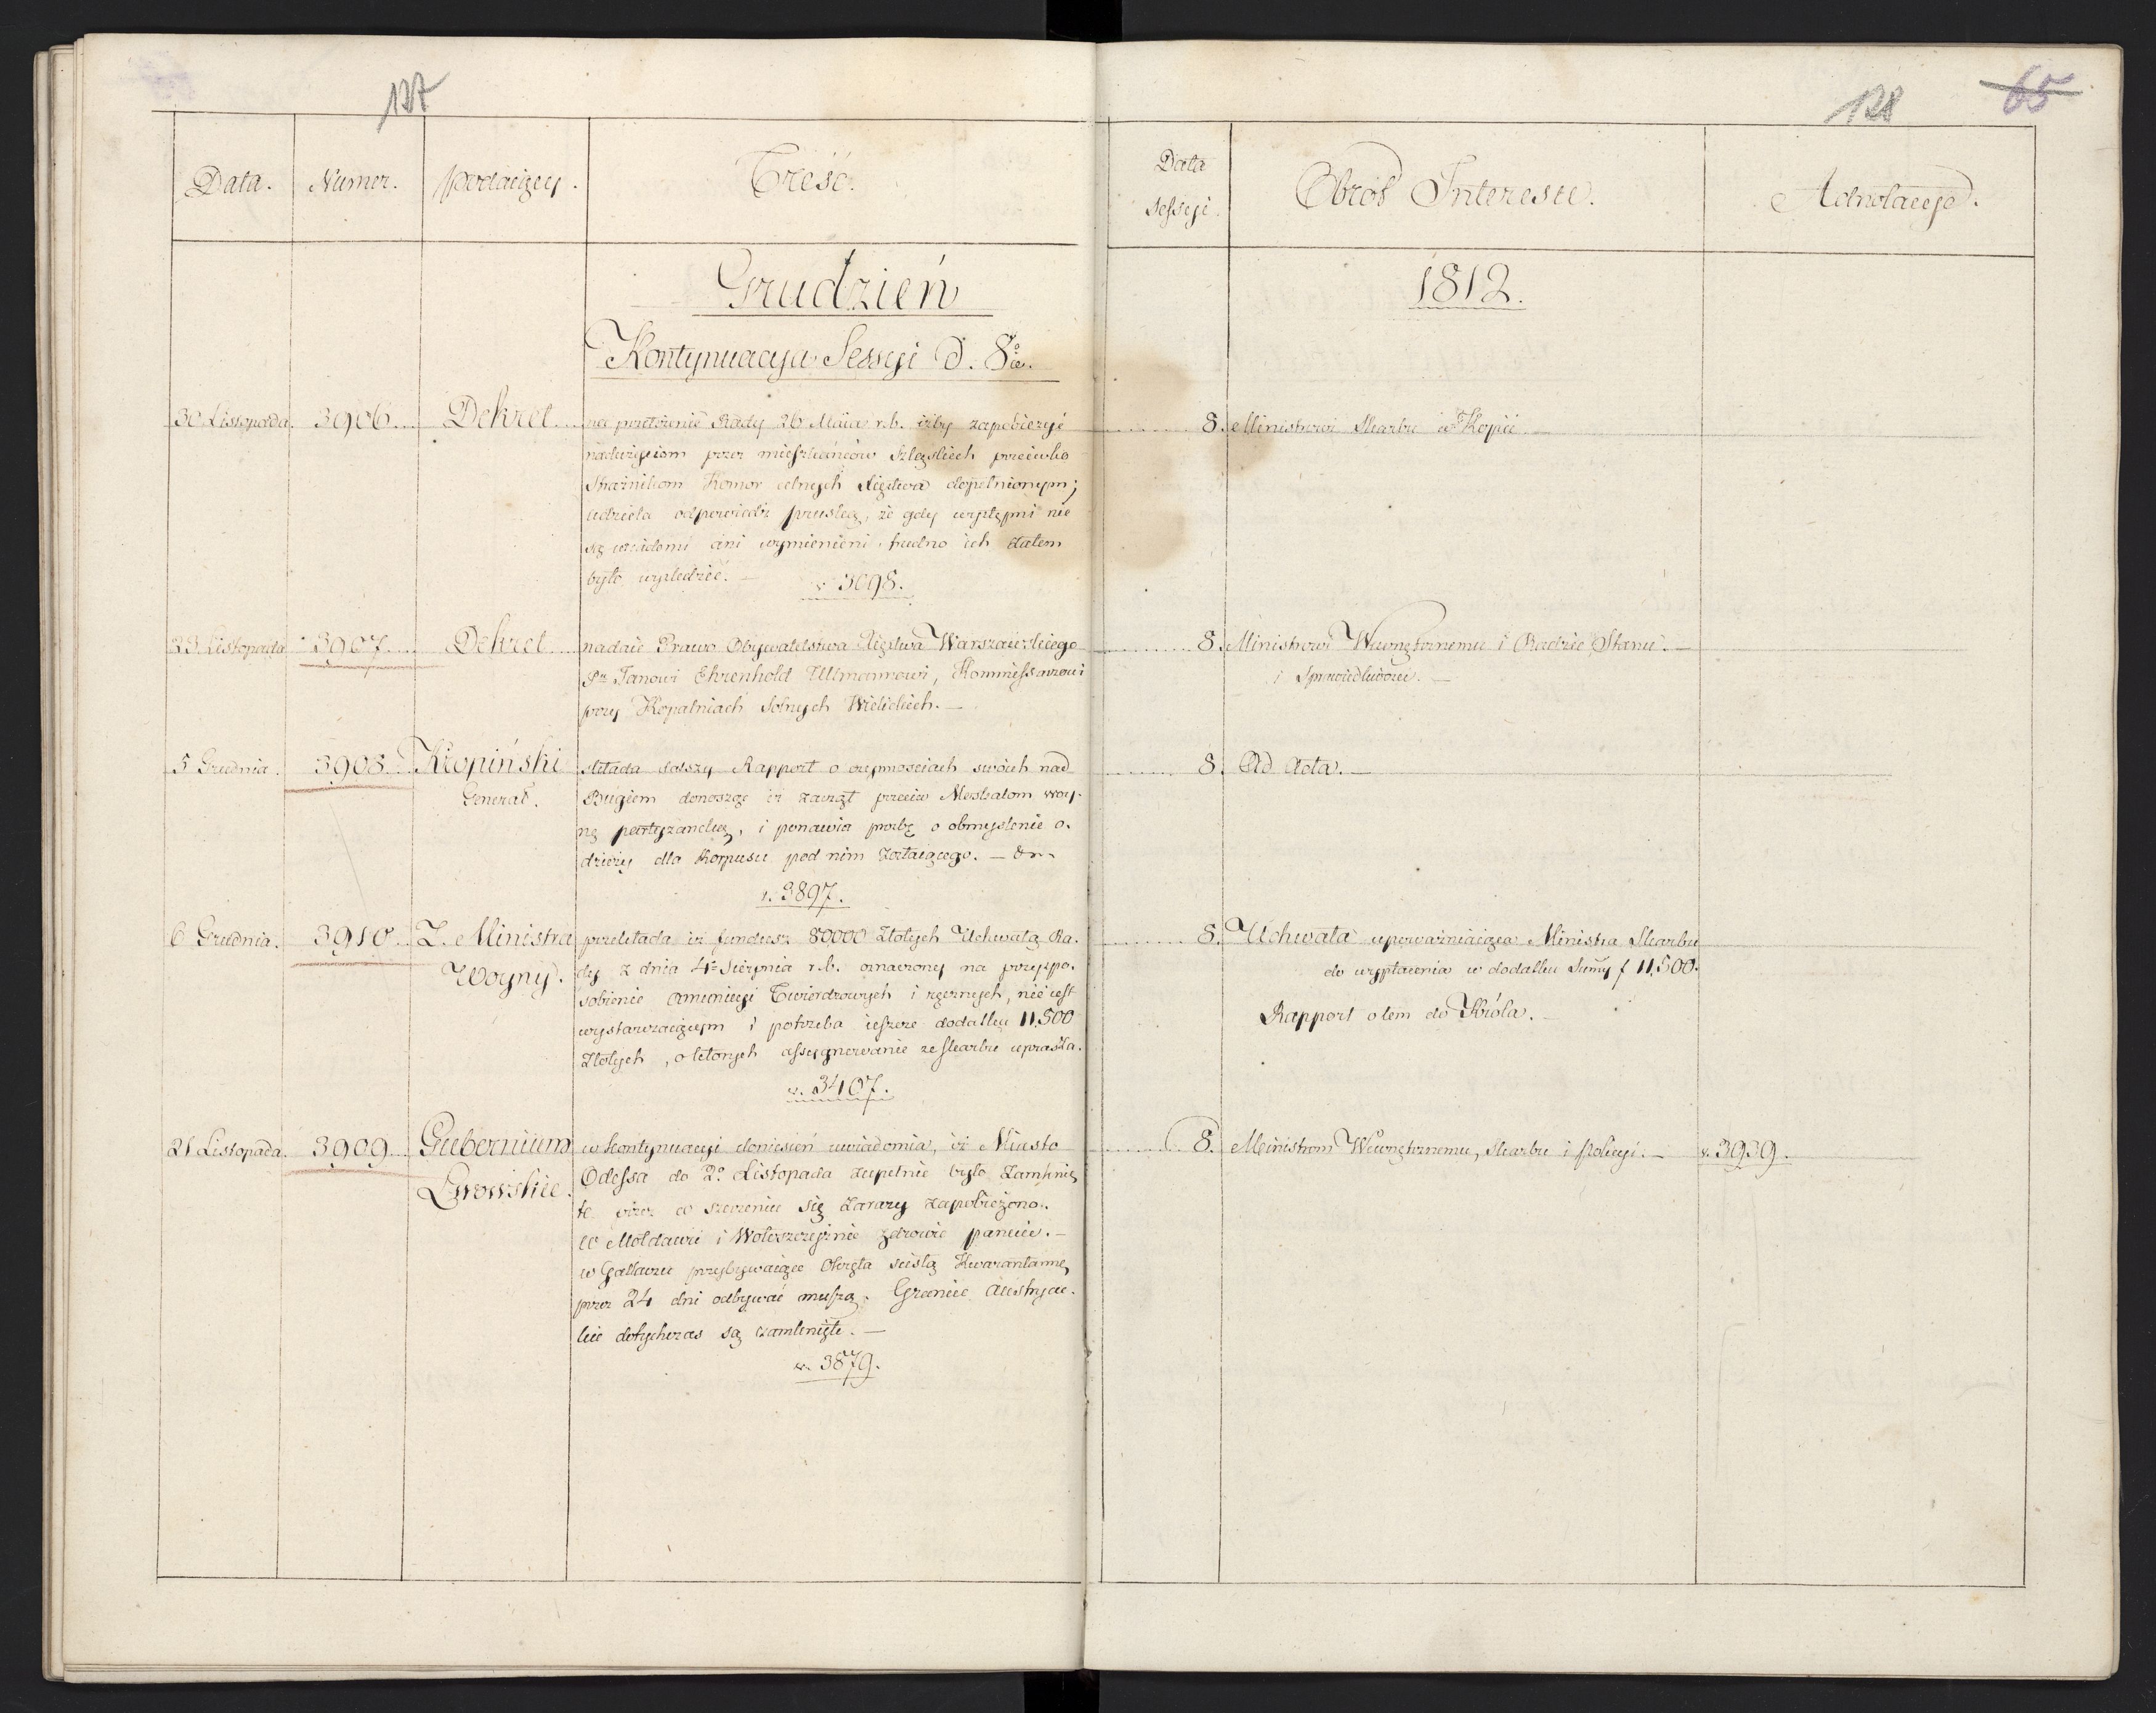 127
Data.
Numer.
podaiący.
Treść.
Grudzień
Kontynuacya Sessyi d. 8º
30 Listopada. 3906. Dekret na przełożenie Rady 26 Maia r.b. iżby zapobieżyć
nadużyciom przez mieszkańców Szląskich przeciwko
Strażnikom Komor celnych Xięstwa dopełnionym;
udziela odpowiedź pruską, że gdy występni nie
są wiadomi ani wymienieni trudno ich zatem
było wyśledzić. —
v. 3098.
23 Listopada 3907. Dekret nadaie Prawo Obywatelstwa Xięstwa Warszawskiego
Pu Janowi Ehrenhold Ullmannowi, Kommissarzowi
przy Kopalniach Solnych Wielickich. —
5 Grudnia. 3908. Kropiński składa dalszy Rapport o czynnościach swoich nad
Generał. Bugiem donosząc iż zaczął przeciw Moskalom woy-
nę partyzancką, i ponawia prośbę o obmyślenie o-
dzieży dla Korpusu pod nim zostaiącego. —
v. 3897.
6 Grudnia. 3910. Z. Ministra przekłada iż fundusz 80,000 Złotych Uchwałą Ra-
Woyny. dy z dnia 4º Sierpnia r.b. oznaczony na przyspo-
sobienie amunicyi Twierdzowych i ręcznych, nie iest
wystarczaiącym i potrzeba ieszcze dodatku 11,500
Złotych, o których assygnowanie ze skarbu uprasza.
v. 3407.
21 Listopada. 3909. Gubernium w kontynuacyi doniesień uwiadomia, iż Miasto
Lwowskie. Odessa do 2º Listopada zupełnie było zamknię
te przez co szerzeniu się zarazy zapobieżono.
w Mołdawii i Wołoszczyznie zdrowie panuie. —
w Gallaczu przybywaiące Okręta ścisłą Kwarantannę
przez 24 dni odbywać muszą. Granice Austryac-
kie dotychczas są zamknięte. —
v. 3879.
128
65
Data
Sessyi.
Obrót Interesu.
Adnotacye.
1812.
8. Ministrowi Skarbu w Kopii —
8. Ministrowi Wewnętrznemu i Radzie Stanu. —
i Sprawiedliwości. —
8. Ad Acta. —
8. Uchwała upoważniaiąca Ministra Skarbu
do wypłacenia w dodatku Summy f 11,500.
Rapport o tem do Króla. —
8. Ministrom Wewnętrznemu, Skarbu i Policyi. — v. 3939.